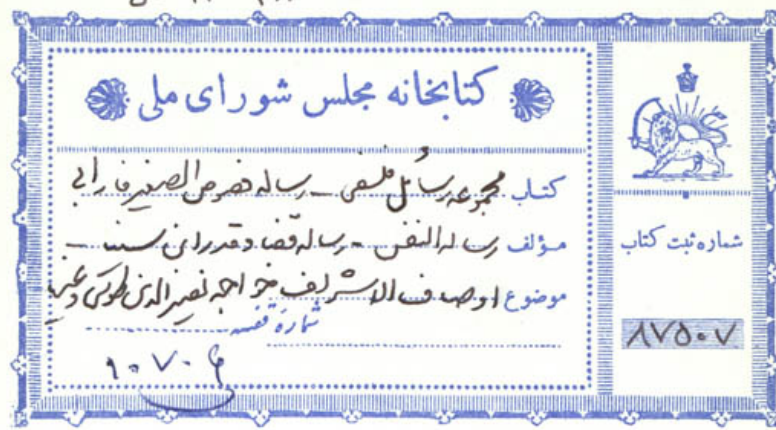 کتابخانه مجلس شورای ملی
کتاب مجموعه رسائل فلسفی - رساله فصوص الصغیر فارابی
مؤلف رساله النفس - رساله قضا و قدر ابن سینا -
موضوع اوصاف الاشراف خواجه نصیرالدین طوسی و غیره
شماره قفسه
۱۰۷۰۶
شماره ثبت کتاب
۸۷۵۰۷